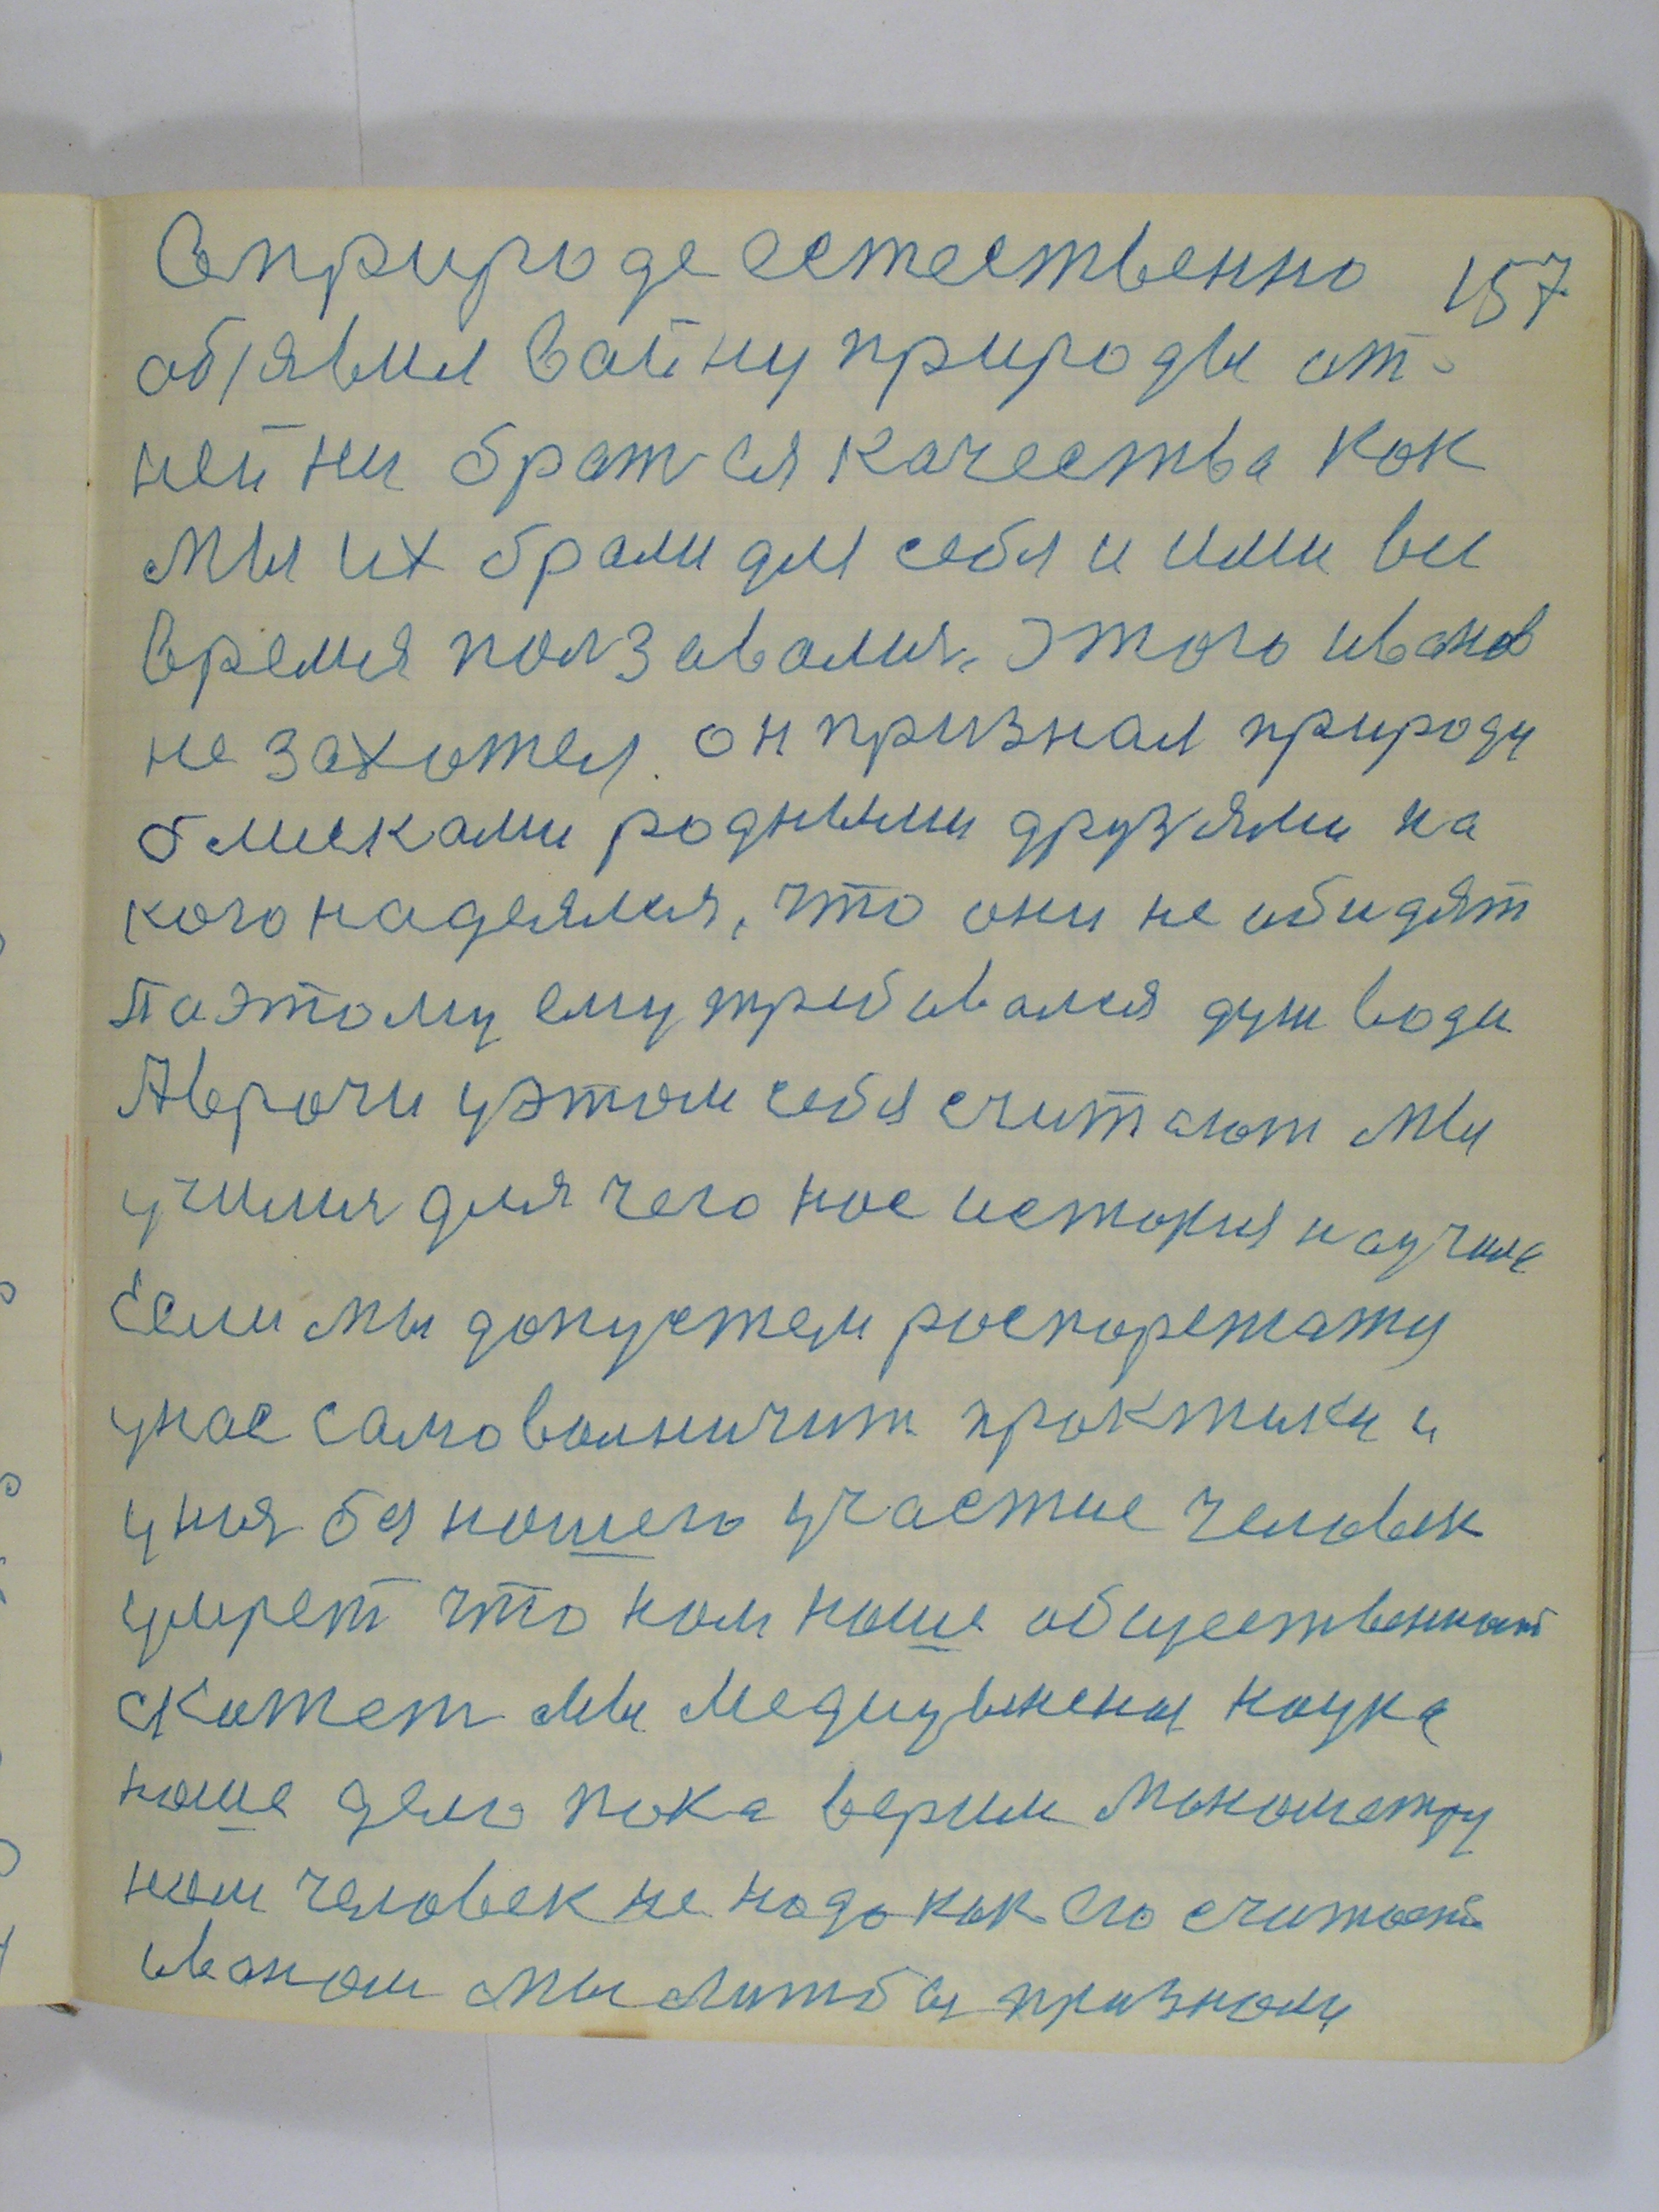 Вприроде естественно 157
об/явил вайну природы от-
ней ни братся качества как
мы их брали для себя и ими ви
время ползавалися. Этого иванов
не захотел. он признал природу
блисками родными друзями на
кого надеялися, что они не обидят
Паэтому ему требавалися душ води
Аврочи уэтом себя считают мы
училися для чего нас история научила
Если мы допустем роспорежатся
унас самоволничит практики и
уния без нашего участие человек
умрет что нам наше общественный
скажет Мы Медицынская наука
наше дело пока верим манометру
нам человек не надо как его считает
иванов мы хотьбы признали